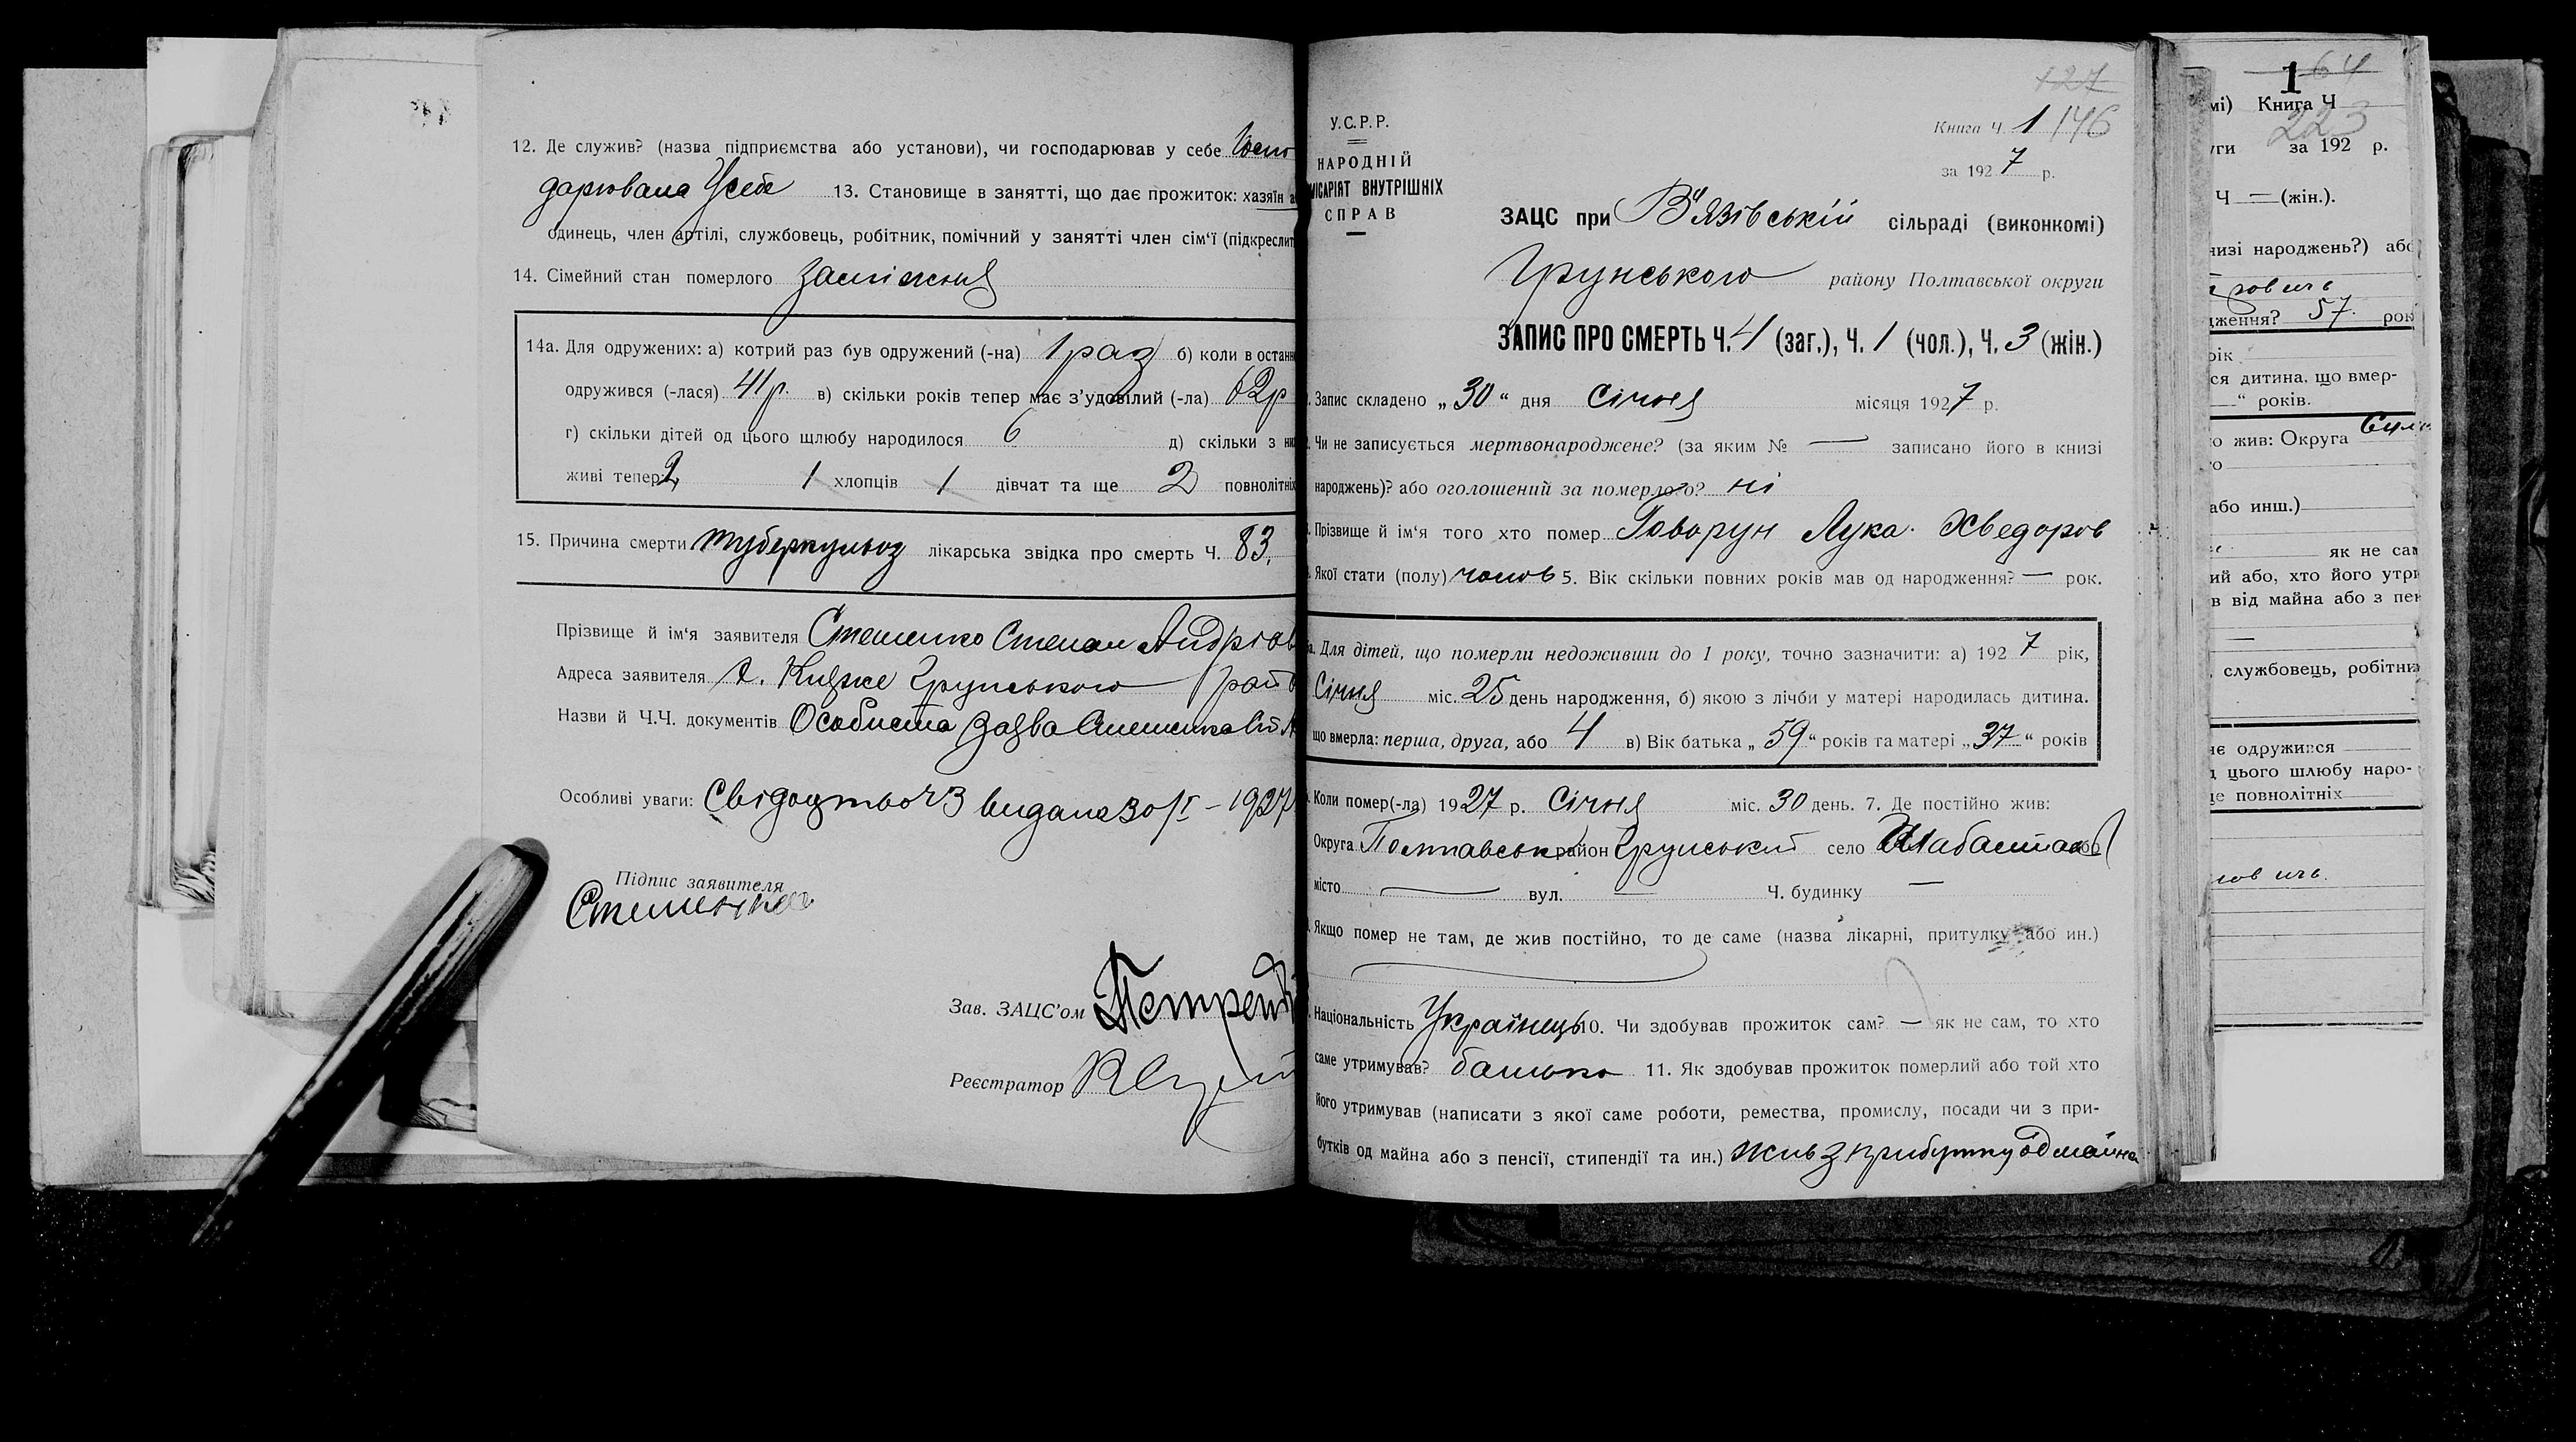 12. Де служив? (назва підприємства або установи), чи господарював у себе Госпо
дарювала Усебе 13. Становище в занятті, що дає прожиток: хазяїн а
одинець, член артілі, службовець, робітник, помічний у занятті член сім'ї (підкреслит
14. Сімейний стан померлого заміжня
14а. Для одружених: а) котрий раз був одружений (-на) 1 раз б) коли в останн
одружився (-лася) 41 р. в) скільки років тепер має з'удовілий (-ла) 62 р
г) скільки дітей од цього щлюбу народилося 6 д) скільки з ни
живі тепер: 2, 1 хлопців 1 дівчат та ще 2 повнолітніх
15. Причина смерти туберкульоз лікарська звідка про смерть Ч. 83.
Прізвище й ім'я заявителя Стешенко Степан Андрієв
Адреса заявителя Грунського рай
Назви й Ч.Ч. документів Особиста заява Стешенка
Особливі уваги: Свідоцтво Ч 3 видане 30/I – 1927
Підпис заявителя
Стешенко
Зав. ЗАЦС'ом
Реєстратор
127
У.С.Р.Р.
Книга Ч. 1 146
НАРОДНІЙ
за 192 7 р.
МІСАРІЯТ ВНУТРІШНІХ
СПРАВ
ЗАЦС при В'язівській сільраді (виконкомі)
Грунського району Полтавської округи
ЗАПИС ПРО СМЕРТЬ Ч. 4 (заг.), Ч. 1 (чол.), Ч. 3 (жін.)
Запис складено „30“ дня Січня місяця 1927 р.
Чи не записується мертвонароджене? (за яким № — записано його в книзі
народжень)? або оголошений за померлого? ні
Прізвище й ім'я того хто помер Говорун Лука Хведоров
Якої стати (полу) чолов 5. Вік скільки повних років мав од народження? — рок.
Для дітей, що померли недоживши до 1 року, точно зазначити: а) 192 7 рік,
Січня міс. 25 день народження, б) якою з лічби у матері народилась дитина.
що вмерла: перша, друга, або 4 в) Вік батька „59“ років та матері „37“ років
Коли помер(-ла) 1927 р. Січня міс. 30 день. 7. Де постійно жив:
Округа Полтавськ район Грунський село або
місто — вул. — Ч. будинку —
Якщо помер не там, де жив постійно, то де саме (назва лікарні, притулку або ин.)
Національність Українець 10. Чи здобував прожиток сам? — як не сам, то хто
саме утримував? батько 11. Як здобував прожиток померлий або той хто
його утримував (написати з якої саме роботи, ремества, промислу, посади чи з при-
бутків од майна або з пенсії, стипендії та ин.) жив з прибутку од майна
1 64
мі) Книга Ч
223
уги за 192 р.
Ч — (жін.).
низі народжень?) або
дження? 57. рок
рік
ся дитина, що вмер-
—“ років.
о жив: Округа
го
або инш.)
як не сам
ий або, хто його утри
в від майна або з пен
—
, службовець, робітни
нє одружився
д цього шлюбу наро-
ще повнолітніх